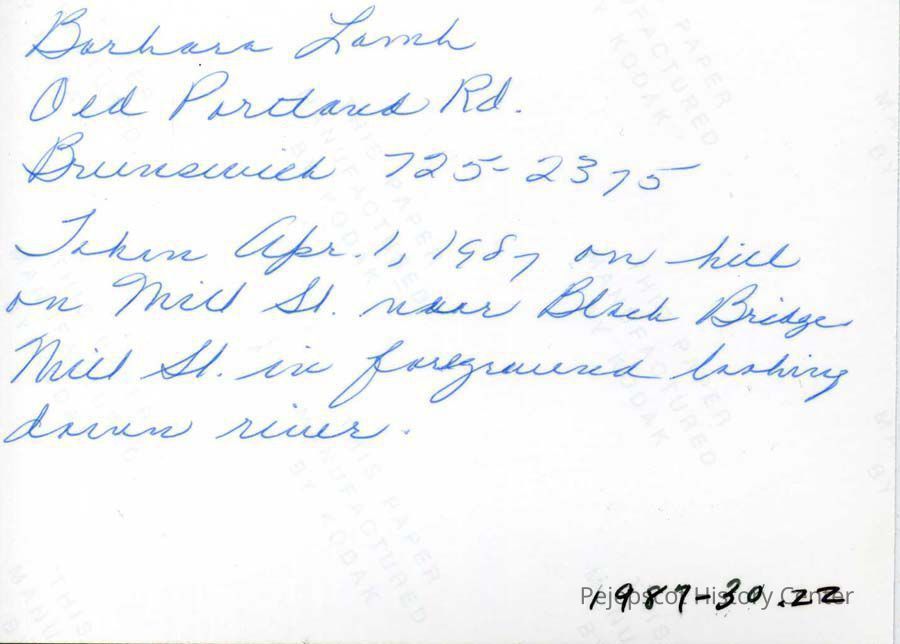 Barbara Lamb
Old Portland Rd.
Brunswick 725-2375
Taken Apr. 1, 1987 on hill
on Mill St. near Black Bridge
Mill St. in foreground looking
down river.
THIS PAPER
MANUFACTURED
BY KODAK
1987-30.22
Pejepscot History Center